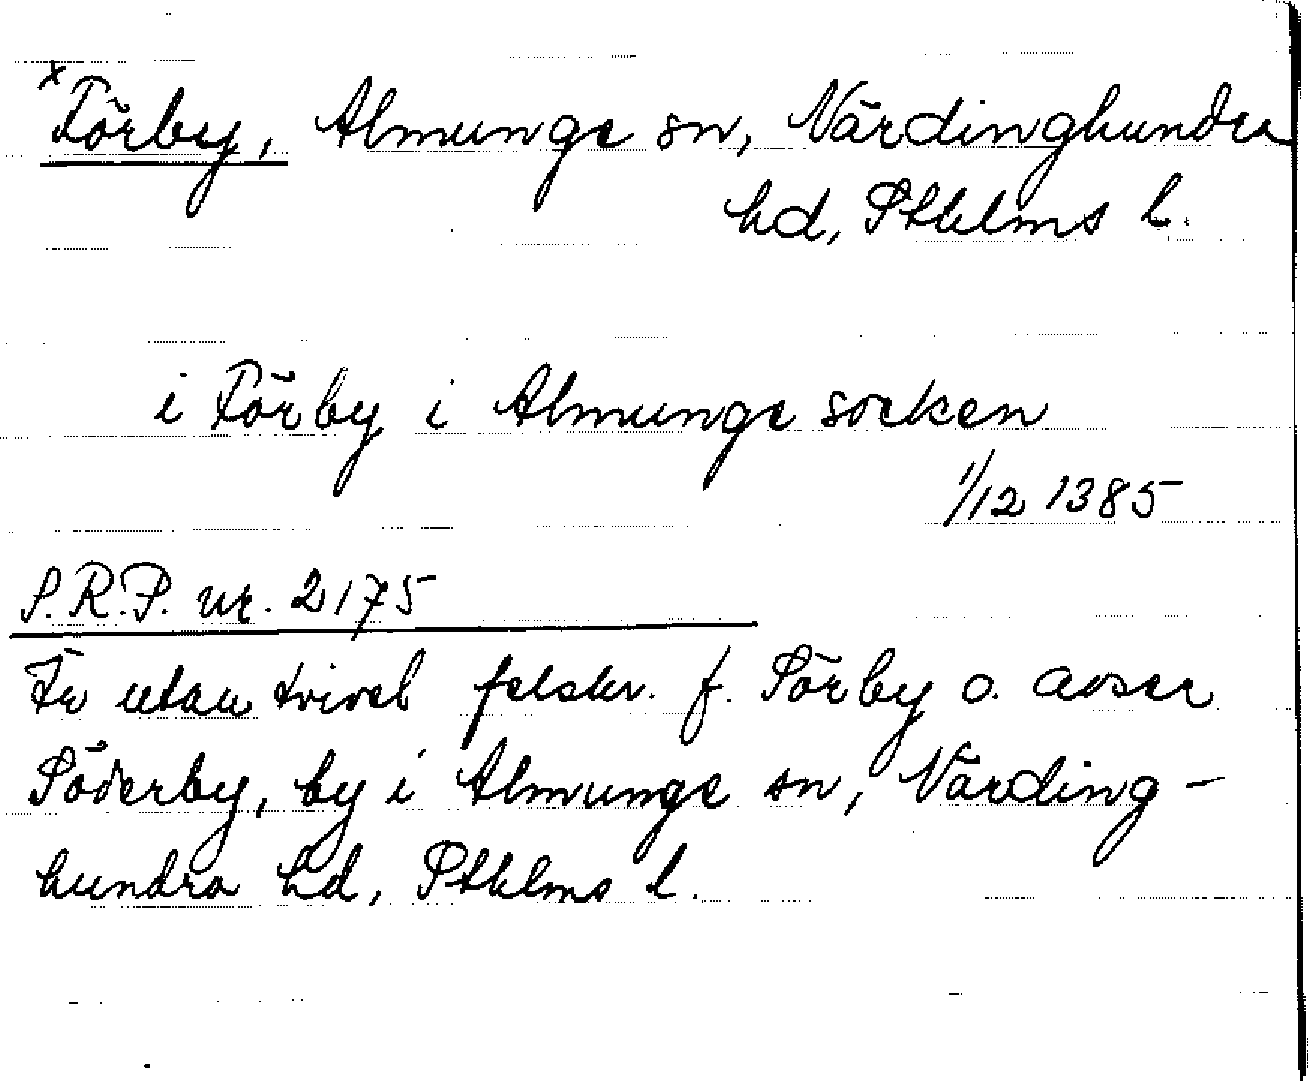 x Förby, Almunge sn, Närdinghundra
hd, Sthlms l.
i Förby i Almunge socken
1/12 1385
S.R.P. nr. 2175
Är utan tvivel felskr. f. Sörby o. avser
Söderby, by i Almunge sn, Närding-
hundra hd, Sthlms l.